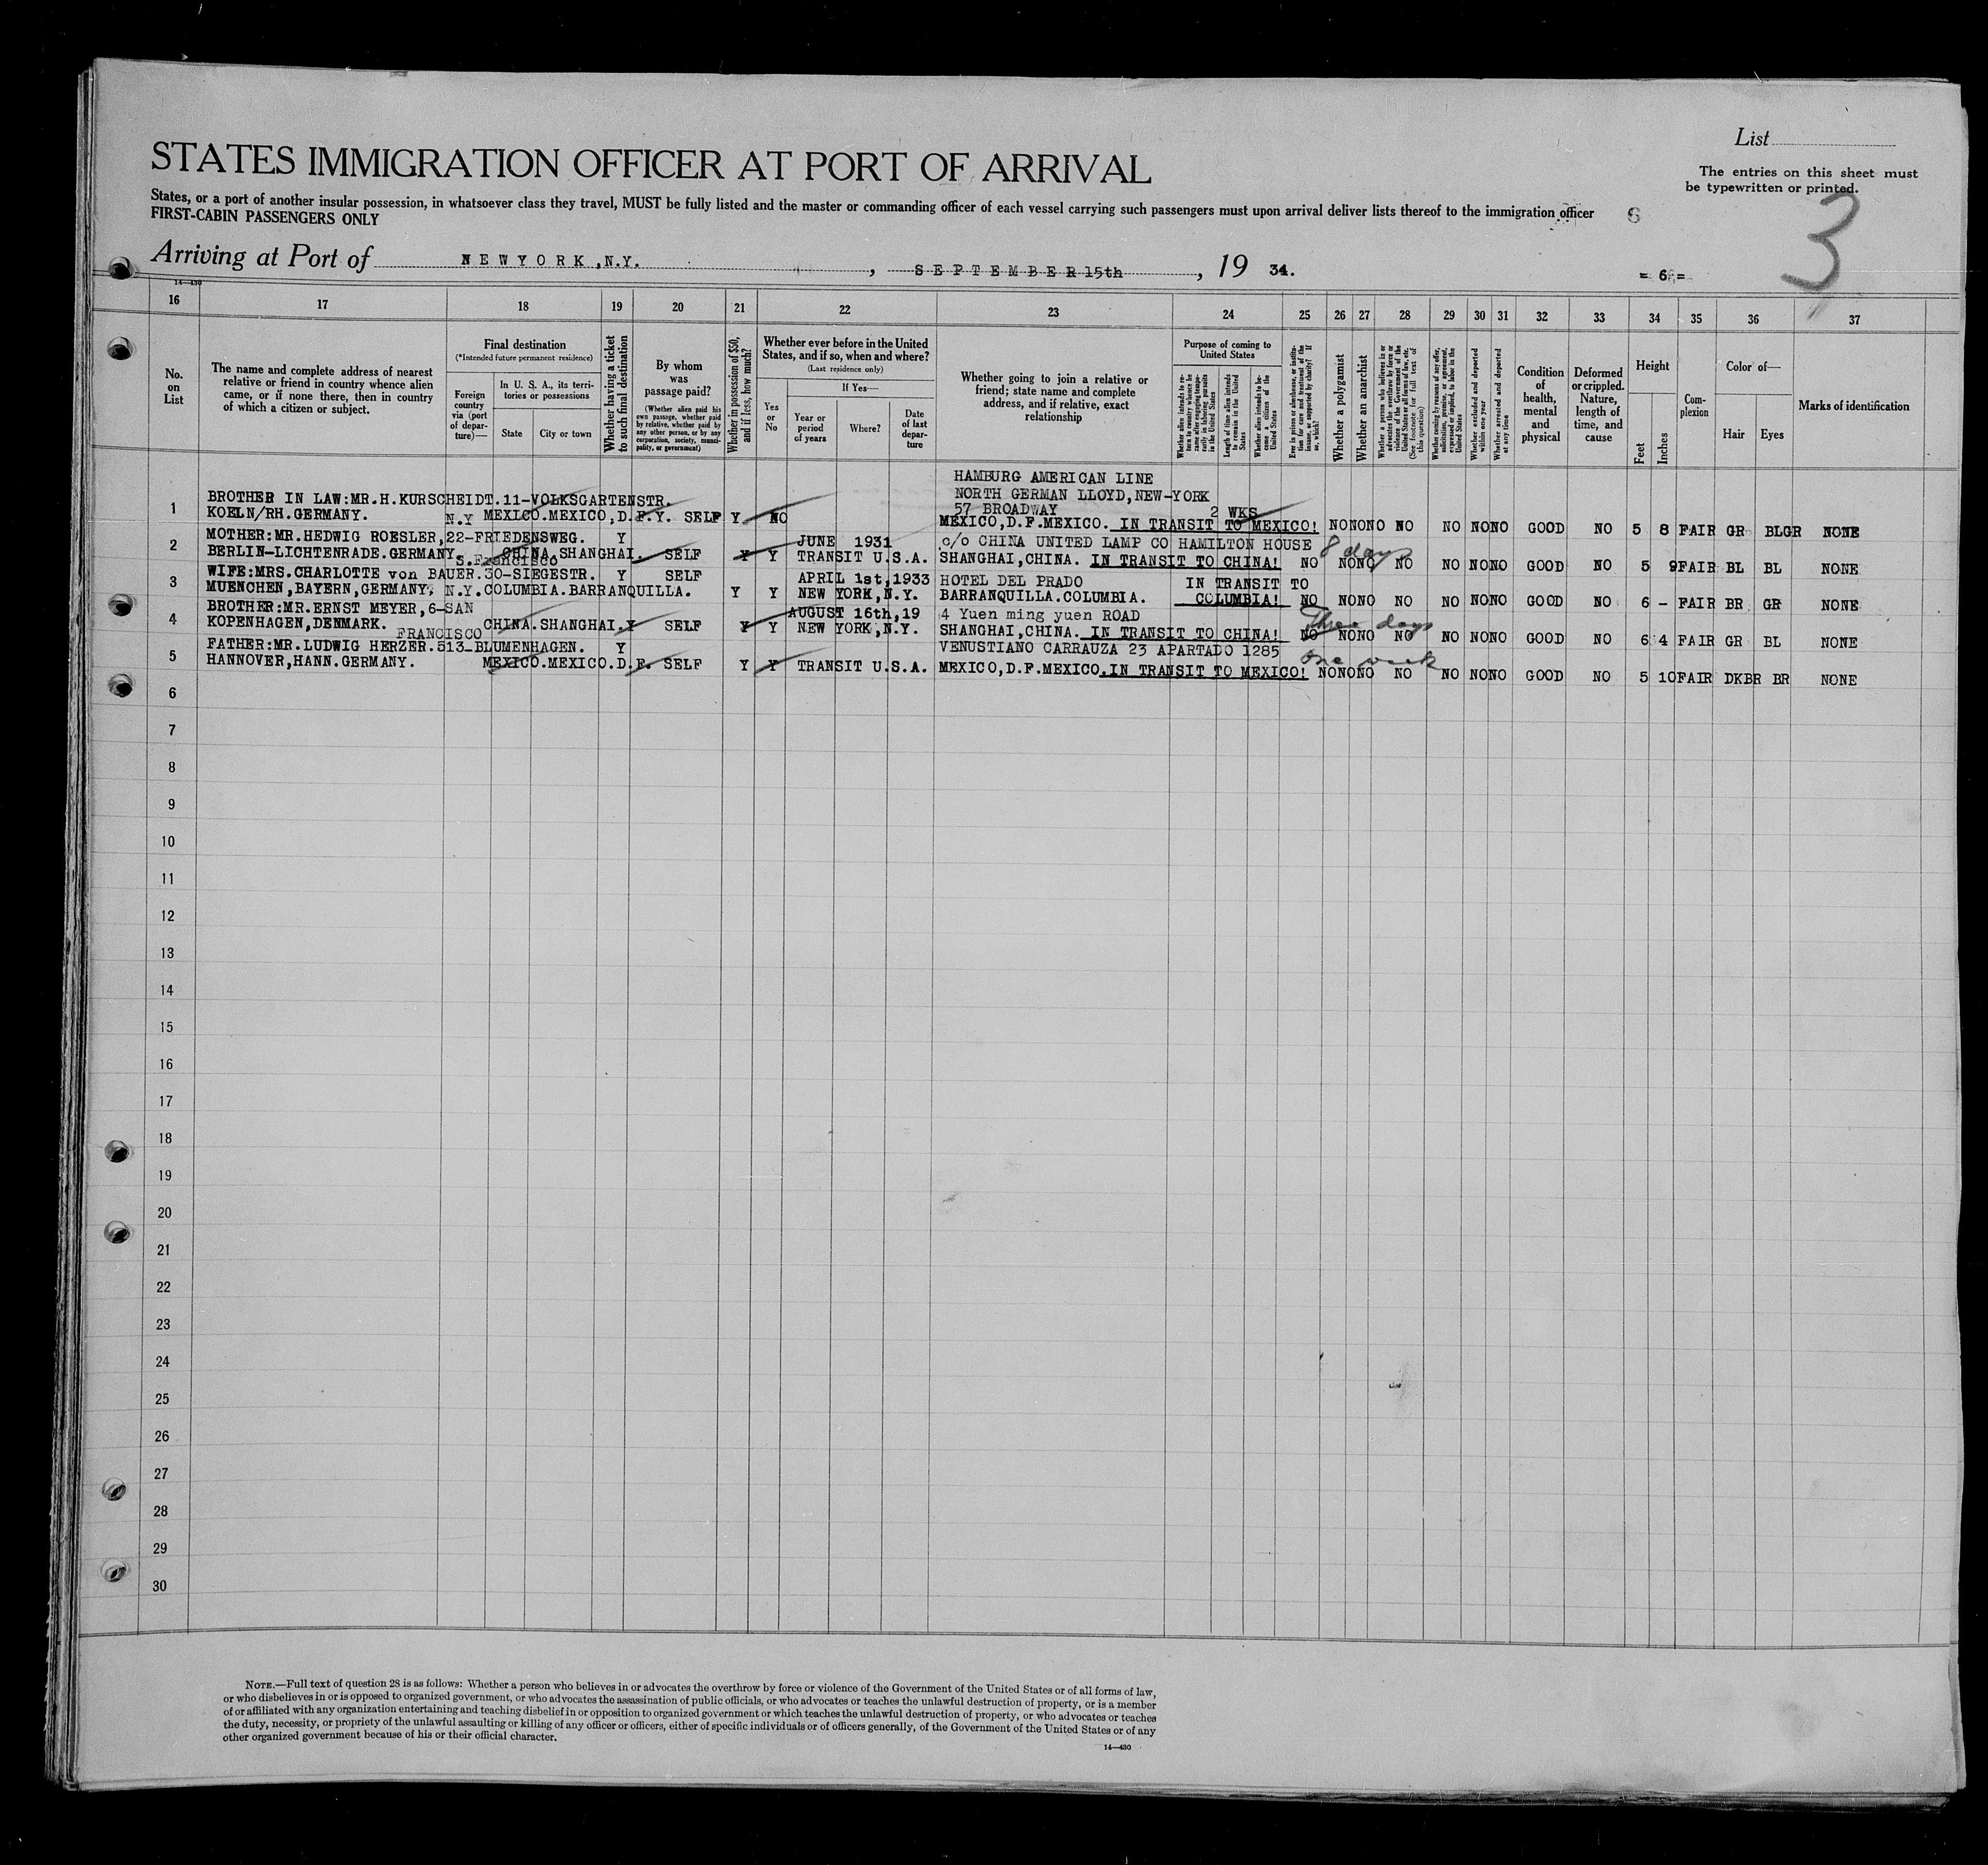 List
STATES IMMIGRATION OFFICER AT PORT OF ARRIVAL
The entries on this sheet must
be typewritten or printed.
States, or a port of another insular possession, in whatsoever class they travel, MUST be fully listed and the master or commanding officer of each vessel carrying such passengers must upon arrival deliver lists thereof to the immigration officer
FIRST-CABIN PASSENGERS ONLY
6
3
Arriving at Port of NEWYORK,N.Y. , SEPTEMBER 15th , 19 34.
= 6 =
14—430
16 17 18 19 20 21 22 23 24 25 26 27 28 29 30 31 32 33 34 35 36 37
No.
on
List
The name and complete address of nearest
relative or friend in country whence alien
came, or if none there, then in country
of which a citizen or subject.
Final destination
(*Intended future permanent residence)
Foreign
country
via (port
of depar-
ture)—
In U. S. A., its terri-
tories or possessions
State
City or town
Whether having a ticket
to such final destination
By whom
was
passage paid?
(Whether alien paid his
own passage, whether paid
by relative, whether paid by
any other person, or by any
corporation, society, munici-
pality, or government)
Whether in possession of $50,
and if less, how much?
Whether ever before in the United
States, and if so, when and where?
(Last residence only)
Yes
or
No
If Yes—
Year or
period
of years
Where?
Date
of last
depar-
ture
Whether going to join a relative or
friend; state name and complete
address, and if relative, exact
relationship
Purpose of coming to
United States
Whether alien intends to re-
turn to country whence he
came after engaging tempo-
rarily in laboring pursuits
in the United States
Length of time alien intends
to remain in the United
States
Whether alien intends to be-
come a citizen of the
United States
Ever in prison or almshouse, or institu-
tion for care and treatment of the
insane, or supported by charity? If
so, which?
Whether a polygamist
Whether an anarchist
Whether a person who believes in or
advocates the overthrow by force or
violence of the Government of the
United States or all forms of law, etc.
(See footnote for full text of
this question)
Whether coming by reasons of any offer,
solicitation, promise, or agreement,
expressed or implied, to labor in the
United States
Whether excluded and deported
within one year
Whether arrested and deported
at any time
Condition
of
health,
mental
and
physical
Deformed
or crippled.
Nature,
length of
time, and
cause
Height
Feet
Inches
Com-
plexion
Color of—
Hair
Eyes
Marks of identification
HAMBURG AMERICAN LINE
BROTHER IN LAW:MR.H.KURSCHEIDT.11-VOLKSGARTENSTR. NORTH GERMAN LLOYD,NEW-YORK
1 KOELN/RH.GERMANY. N.Y MEXICO.MEXICO,D.F.Y. SELF Y NO 57 BROADWAY 2 WKS
MEXICO,D.F.MEXICO. IN TRANSIT TO MEXICO! NO NO NO NO NO NO NO GOOD NO 5 8 FAIR GR BLGR NONE
MOTHER:MR.HEDWIG ROESLER,22-FRIEDENSWEG. Y JUNE 1931 c/o CHINA UNITED LAMP CO HAMILTON HOUSE 8 days
2 BERLIN-LICHTENRADE.GERMANY. S.Francisco CHINA.SHANGHAI. SELF Y Y TRANSIT U.S.A. SHANGHAI,CHINA. IN TRANSIT TO CHINA! NO NO NO NO NO NO NO GOOD NO 5 9 FAIR BL BL NONE
WIFE:MRS.CHARLOTTE von BAUER.30-SIEGESTR. Y SELF APRIL 1st,1933 HOTEL DEL PRADO IN TRANSIT TO
3 MUENCHEN,BAYERN,GERMANY. N.Y.COLUMBIA.BARRANQUILLA. Y Y NEW YORK,N.Y. BARRANQUILLA.COLUMBIA. COLUMBIA! NO NO NO NO NO NO NO GOOD NO 6 - FAIR BR GR NONE
BROTHER:MR.ERNST MEYER,6-SAN AUGUST 16th,19 4 Yuen ming yuen ROAD Three days
4 KOPENHAGEN,DENMARK. FRANCISCO CHINA.SHANGHAI.Y SELF Y Y NEW YORK,N.Y. SHANGHAI,CHINA. IN TRANSIT TO CHINA! NO NO NO NO NO NO NO GOOD NO 6 4 FAIR GR BL NONE
FATHER:MR.LUDWIG HERZER.513-BLUMENHAGEN. Y VENUSTIANO CARRAUZA 23 APARTADO 1285 one week
5 HANNOVER,HANN.GERMANY. MEXICO.MEXICO.D.F. SELF Y Y TRANSIT U.S.A. MEXICO,D.F.MEXICO.IN TRANSIT TO MEXICO! NO NO NO NO NO NO NO GOOD NO 5 10 FAIR DKBR BR NONE
6
7
8
9
10
11
12
13
14
15
16
17
18
19
20
21
22
23
24
25
26
27
28
29
30
NOTE.—Full text of question 28 is as follows: Whether a person who believes in or advocates the overthrow by force or violence of the Government of the United States or of all forms of law,
or who disbelieves in or is opposed to organized government, or who advocates the assassination of public officials, or who advocates or teaches the unlawful destruction of property, or is a member
of or affiliated with any organization entertaining and teaching disbelief in or opposition to organized government or which teaches the unlawful destruction of property, or who advocates or teaches
the duty, necessity, or propriety of the unlawful assaulting or killing of any officer or officers, either of specific individuals or of officers generally, of the Government of the United States or of any
other organized government because of his or their official character.
14—430